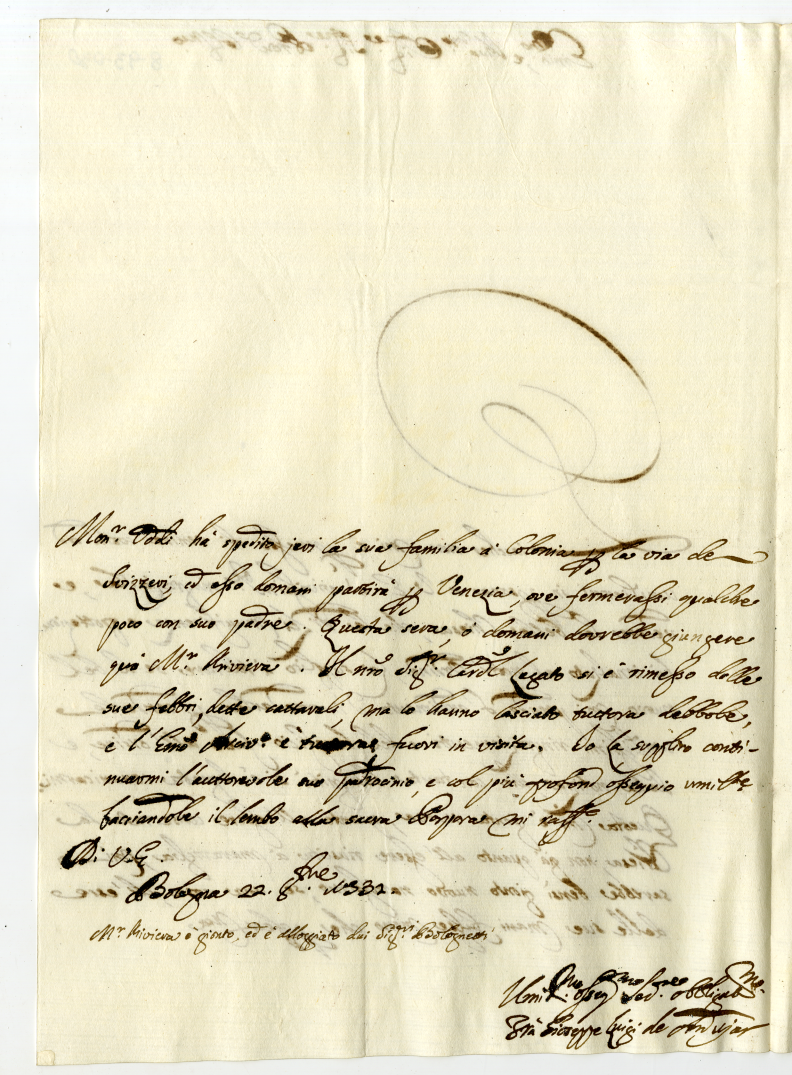 Mon.r Oddi hà spedito jeri la sua familia à Colonia p la via de
Svizzeri, ed esso domani partirà p Venezia, ove fermerassi qualche
poco con suo padre. Questa sera, ò domani dovrebbe giungere
quà M.r Riviera. Il nrõ Sig.r Card.l Legato si è rimesso delle
sue febbri, dette cattarali, ma lo hanno lasciato tuttora debbole,
e l'Emõ Arciv.o è tuttora fuori in visita. Io la supplico conti-
nuarmi l'auttorevole suo patrocinio, e col più profond ossequio umil.te
bacciandole il lembo alla sacra Porpora mi raff.o
Di V.E.
Bologna 22. 8.bre 1732
M.r Riviera è gionto, ed è alloggiato dai Sig.ri Bolognetti
Umil.mo osseq.mo Ser.re obbligat.mo
Frà Gioseppe Luigi de